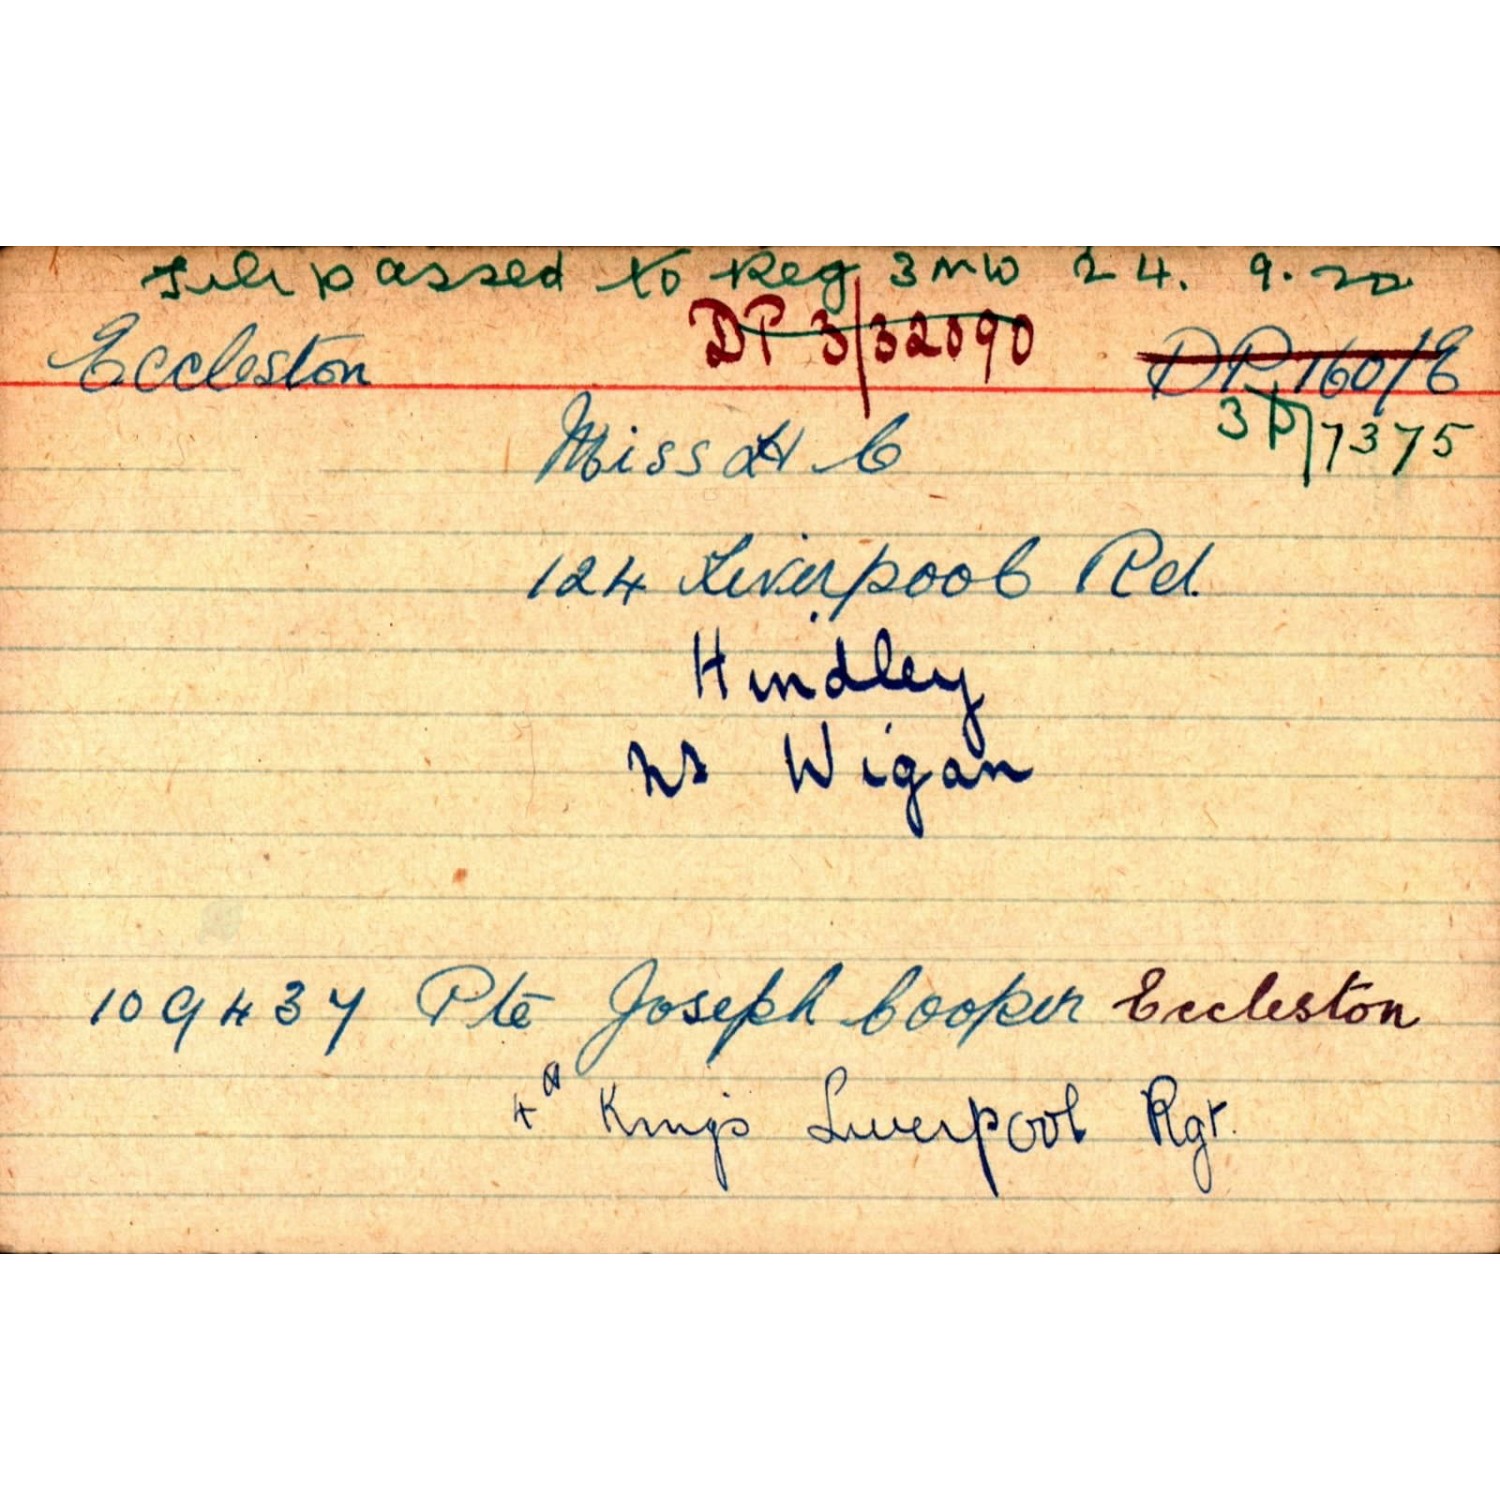 File passed to Reg 3 MW 24. 9. 20
Eccleston DP 3/32090 DP 160/E
3 D/7375
Miss H C
124 Liverpool Rd.
Hindley
Nr Wigan
109437 Pte Joseph Cooper Eccleston
4th Kings Liverpool Rgt.